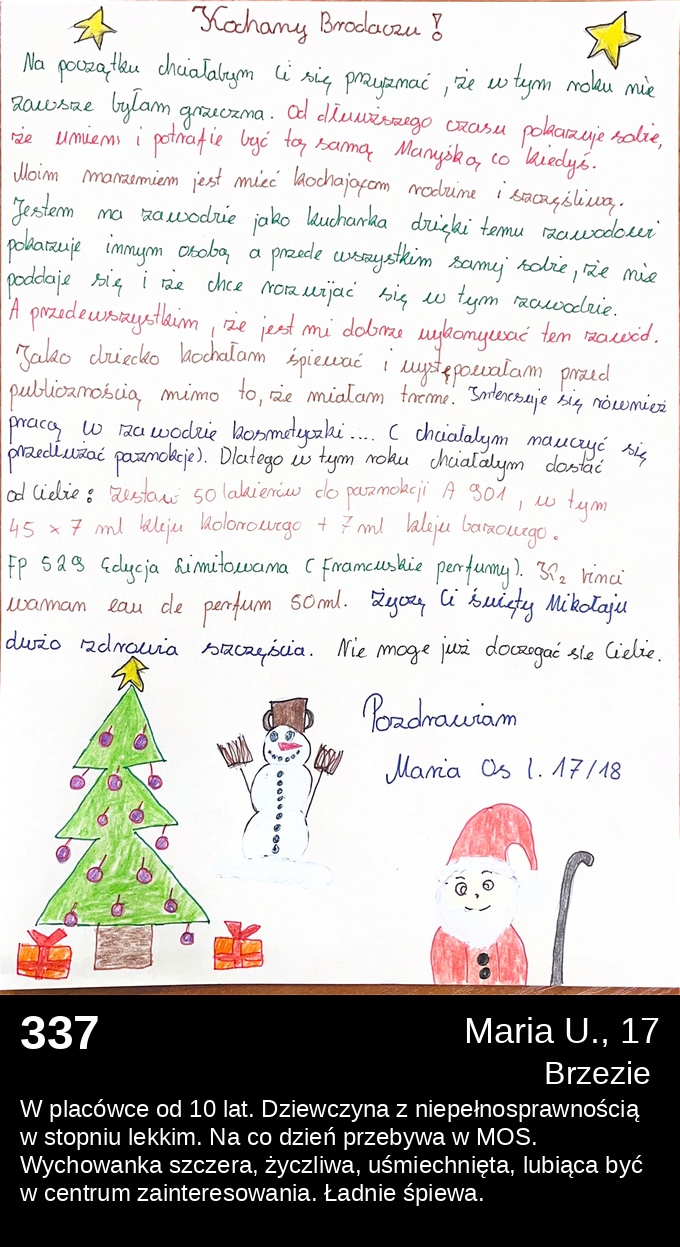 Kochany Brodaczu !
Na początku chciałabym Ci się przyznać, że w tym roku nie
zawsze byłam grzeczna. Od dłuższego czasu pokazuje sobie,
że umiem i potrafie być tą samą Maryśką co kiedyś.
Moim marzeniem jest mieć kochającom rodzine i szczęśliwą.
Jestem na zawodzie jako kucharka dzięki temu zawodowi
pokazuje innym osobą a przede wszystkim samej sobie, że nie
poddaje się i że chce rozwijać się w tym zawodzie.
A przedewszystkim, że jest mi dobrze wykonywać ten zawód.
Jako dziecko kochałam śpiewać i występowałam przed
publicznością mimo to, że miałam treme. Interesuje się również
pracą w zawodzie kosmetyczki.... ( chciałabym nauczyć się
przedłużać paznokcje). Dlatego w tym roku chciałabym dostać
od Ciebie : zestaw 50 lakierów do paznokcji A 901, w tym
45 x 7 ml kleju kolorowego + 7 ml kleju bazowego.
FP 529 Edycja Limitowana (Francuskie perfumy). vinci
woman eau de perfum 50ml. Życzę Ci święty Mikołaju
dużo zdrowia szczęścia. Nie moge już doczegać sie Ciebie.
Pozdrawiam
Maria Os l. 17/18
337
Maria U., 17
Brzezie
W placówce od 10 lat. Dziewczyna z niepełnosprawnością
w stopniu lekkim. Na co dzień przebywa w MOS.
Wychowanka szczera, życzliwa, uśmiechnięta, lubiąca być
w centrum zainteresowania. Ładnie śpiewa.